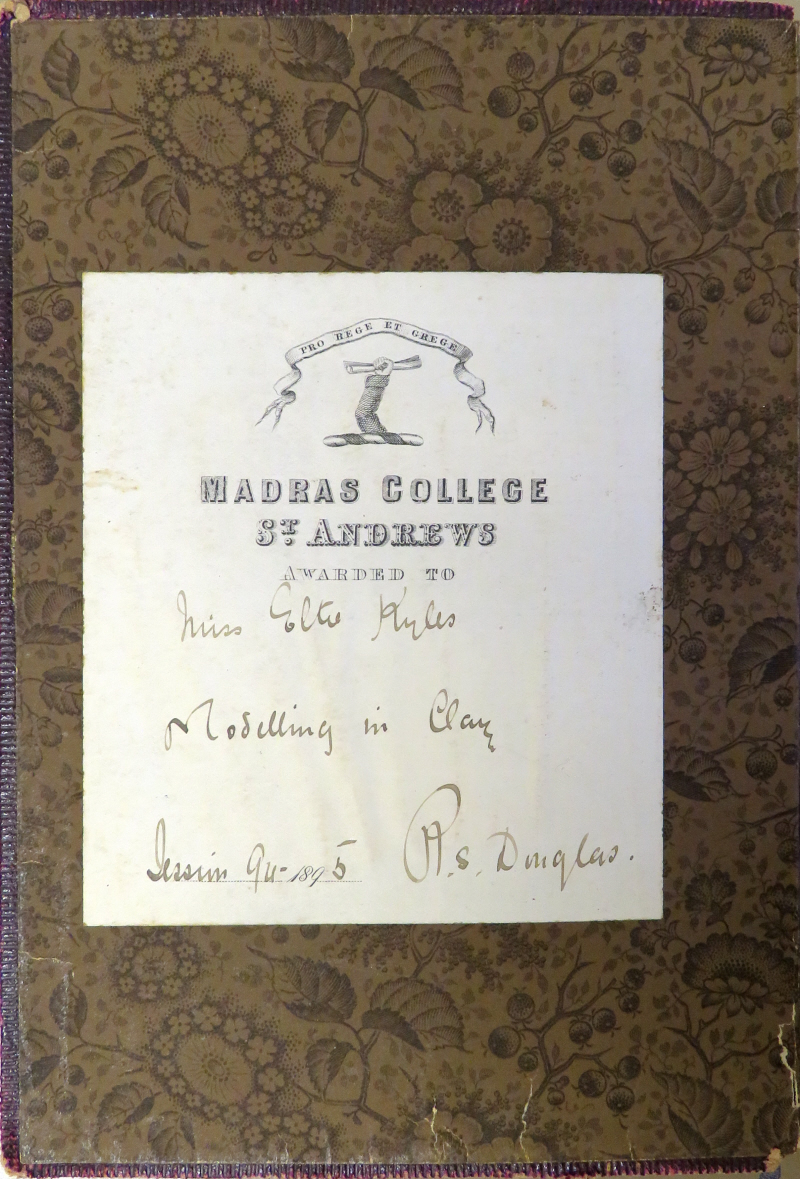 PRO REGE ET GREGE
MADRAS COLLEGE
ST. ANDREWS
AWARDED TO
Miss Kyles
Modelling in Clay
Session 94-1895 R.S. Douglas.